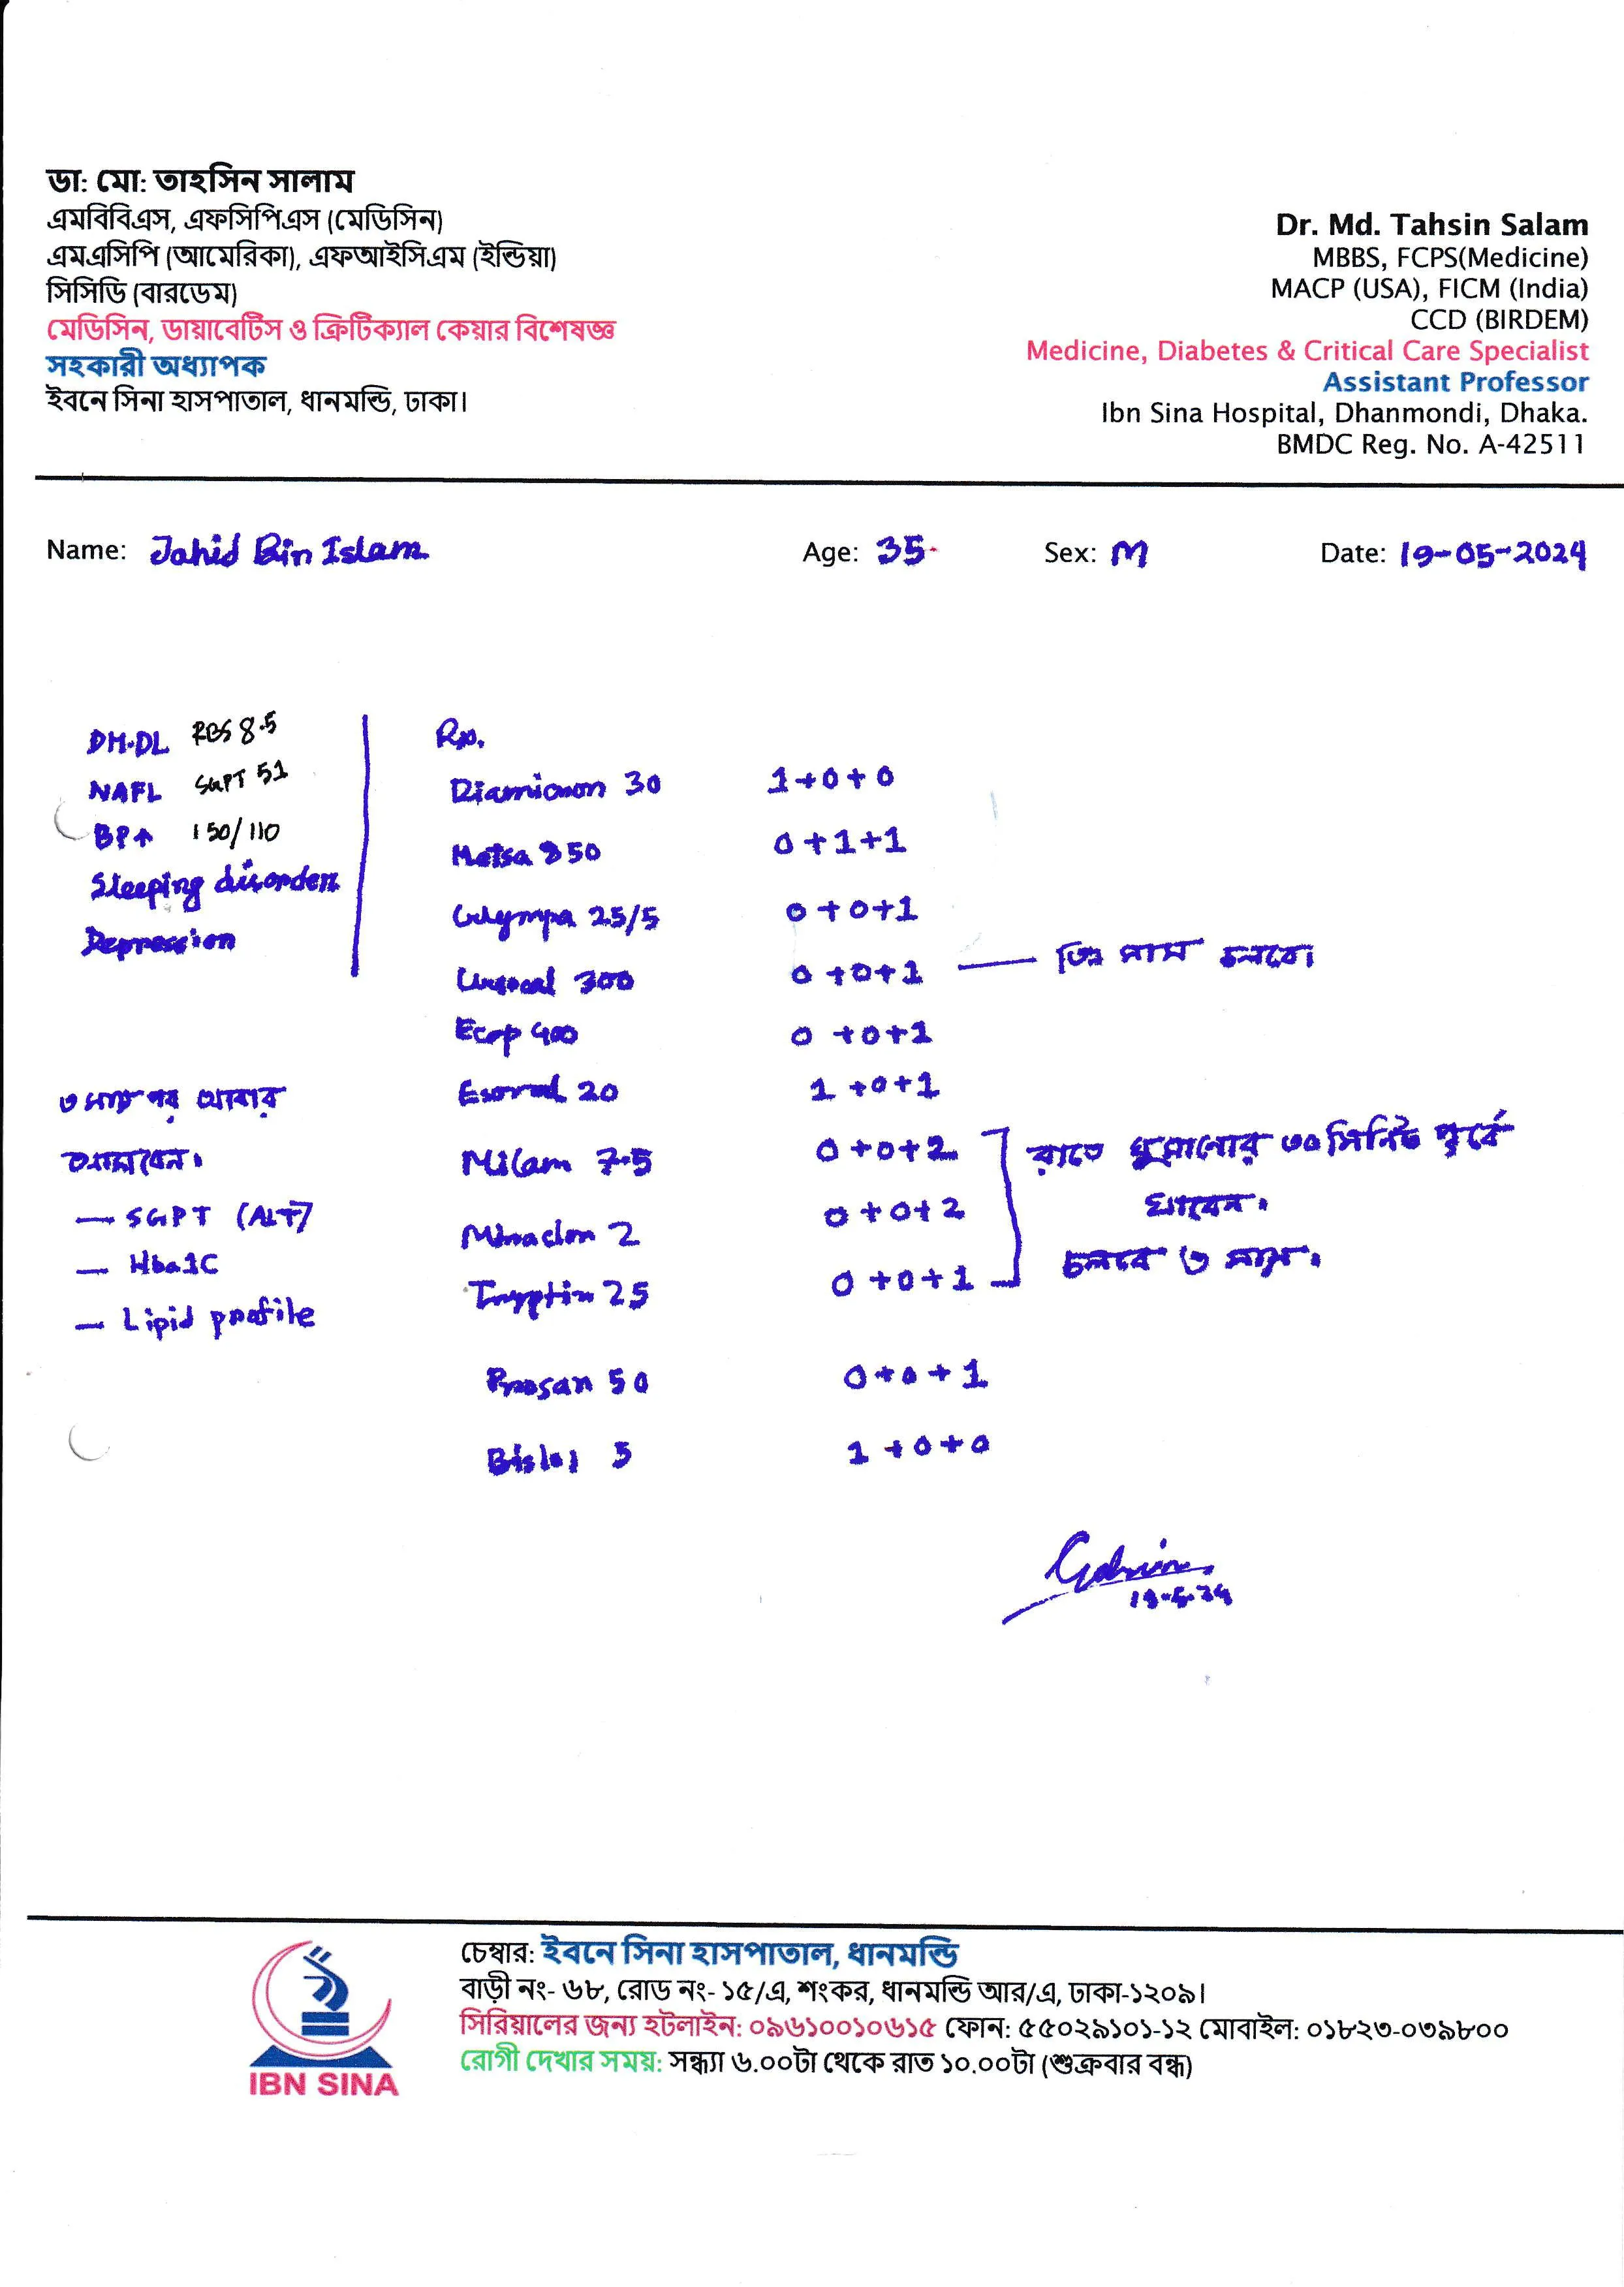 ডা: মো: তাহসিন সালাম
এমবিবিএস, এফসিপিএস (মেডিসিন)
এমএসিপি (আমেরিকা), এফআইসিএম (ইন্ডিয়া)
সিসিডি (বারডেম)
মেডিসিন, ডায়াবেটিস ও ক্রিটিক্যাল কেয়ার বিশেষজ্ঞ
সহকারী অধ্যাপক
ইবনে সিনা হাসপাতাল, ধানমন্ডি, ঢাকা।
Dr. Md. Tahsin Salam
MBBS, FCPS(Medicine)
MACP (USA), FICM (India)
CCD (BIRDEM)
Medicine, Diabetes & Critical Care Specialist
Assistant Professor
Ibn Sina Hospital, Dhanmondi, Dhaka.
BMDC Reg. No. A-42511
Name: Jahid Bin Islam Age: 35 Sex: M Date: 19-05-2024
DM-DL RBS 8.5
NAFL SGPT 51
BP↑ 150/110
Sleeping disorder
Depression
৩ মাস পর আবার
আসবেন।
— SGPT (ALT)
— Hba1C
— Lipid profile
Rx.
Diamicron 30 1+0+0
Metsa 850 0+1+1
25/5 0+0+1
300 0+0+1 — তিন মাস চলবে।
Ecop 400 0+0+1
Esoral 20 1+0+1
Milam 7.5 0+0+2
2 0+0+2
Tryptin 25 0+0+1
রাতে ঘুমানোর ৩০ মিনিট পূর্বে
খাবেন।
চলবে ৩ মাস।
Prosan 50 0+0+1
Bislol 5 1+0+0
19-5-24
IBN SINA
চেম্বার: ইবনে সিনা হাসপাতাল, ধানমন্ডি
বাড়ী নং- ৬৮, রোড নং- ১৫/এ, শংকর, ধানমন্ডি আর/এ, ঢাকা-১২০৯।
সিরিয়ালের জন্য হটলাইন: ০৯৬১০০১০৬১৫ ফোন: ৫৫০২৯১০১-১২ মোবাইল: ০১৮২৩-০৩৯৮০০
রোগী দেখার সময়: সন্ধ্যা ৬.০০টা থেকে রাত ১০.০০টা (শুক্রবার বন্ধ)